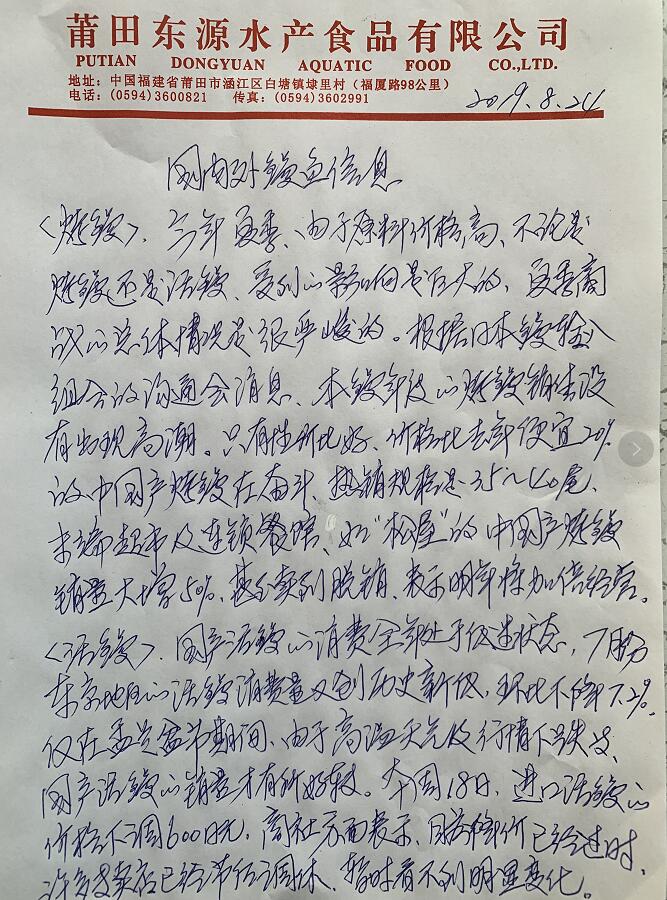 莆田东源水产食品有限公司
PUTIAN DONGYUAN AQUATIC FOOD CO.,LTD.
地址：中国福建省莆田市涵江区白塘镇埭里村（福厦路98公里）
电话：(0594)3600821 传真：(0594)3602991
2019.8.24
国内外鳗鱼信息
〈烤鳗〉、今年夏季、由于原料价格高、不论是
烤鳗还是活鳗、受到的影响是巨大的，夏季商
战的总体情况是很严峻的。根据日本鳗输入
组合的沟通会消息、本鳗年度的烤鳗销售没
有出现高潮。只有性价比好、价格比去年便宜20%
的中国产烤鳗在奋斗、热销规格是35～40尾、
末端超市及连锁餐馆、如"松屋"的中国产烤鳗
销量大增50%、甚至卖到脱销、表示明年将加倍经营。
〈活鳗〉、国产活鳗的消费全年处于低迷状态，7月份
东京地区的活鳗消费量又创历史新低，环比下降7.2%，
仅在盂兰盆节期间、由于高温天气及行情下跌、
国产活鳗的销量才有所好转。本周18日，进口活鳗的
价格下调600日元，商社方面表示、目前降价已经过时，
许多专卖店已经节后调休、暂时看不到明显变化。